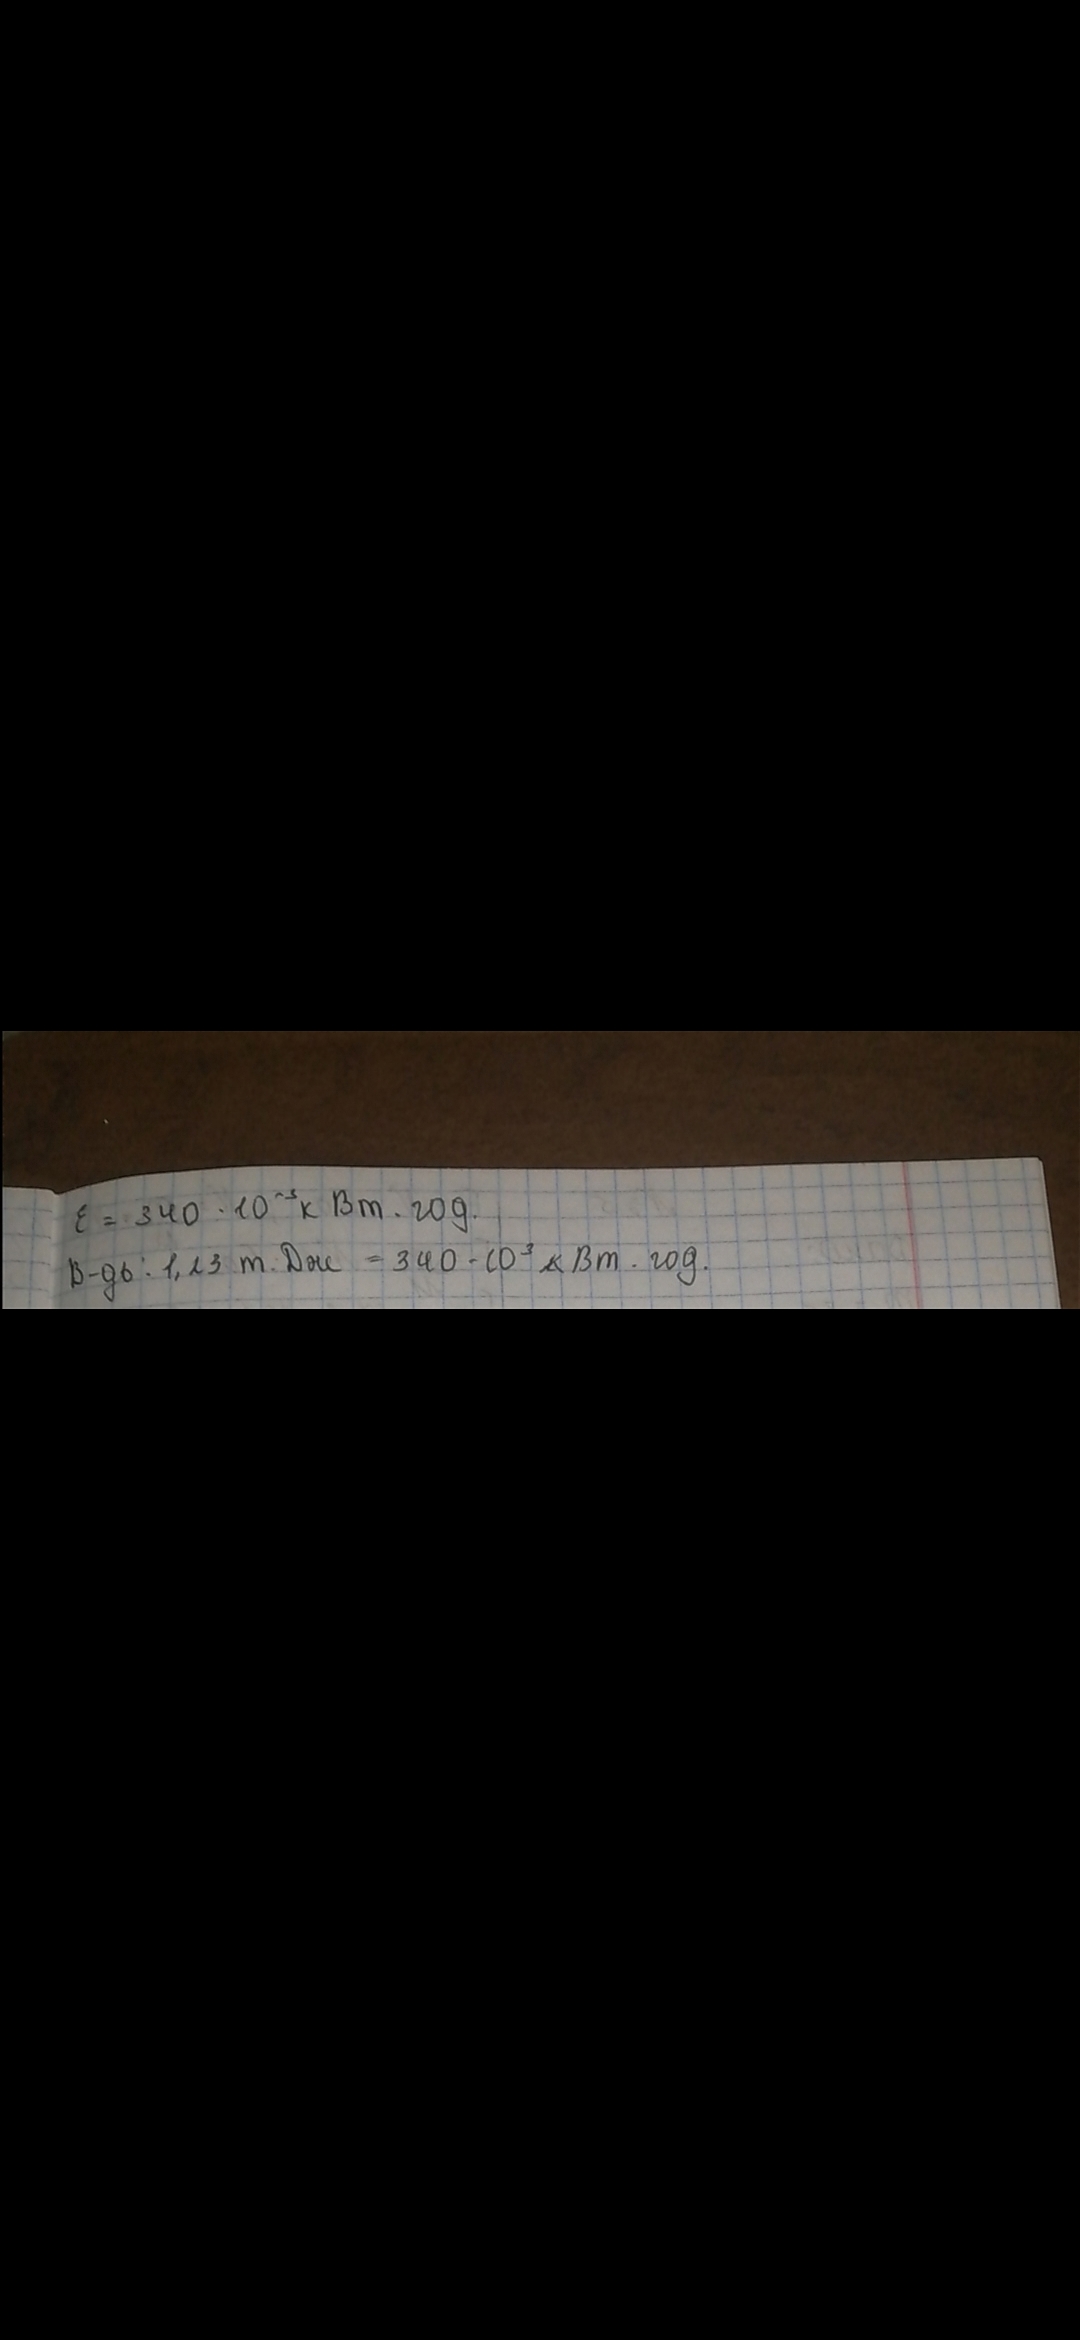 E = 340 · 10⁻³ к Вт · год.
В-дь: 1,23 т. Дж = 340 · 10³ к Вт · год.